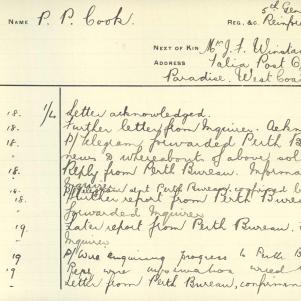 5th Gen
NAME P. P. Cook. REG. &C. Reinfor
NEXT OF KIN Mr J. F. Winstan
ADDRESS Talia Post O
Paradise. West Coa
18. 1/4 Letter acknowledged.
18. Further letter from Inquirer. Ackn
18. P/ Telegram forwarded Perth B
" news & whereabouts of above sol
18. Reply from Perth Bureau. Informa
Inquirer
18. P/ sent Perth Bureau, confirmed b
18. Further report from Perth Burea
" forwarded Inquirer
19 Later report from Perth Bureau.
" Inquirer
19 P/ Wire enquiring progress to Perth B
19 Reply wire information wired
" Letter from Perth Bureau, confirma